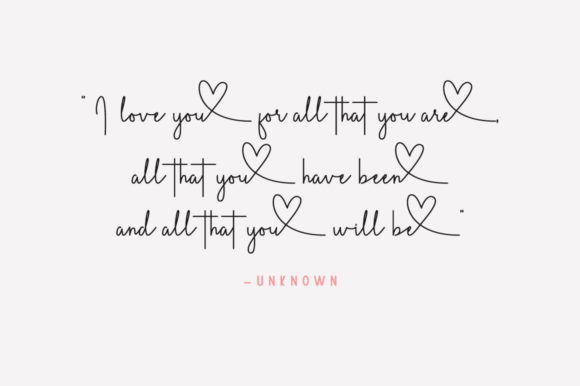 " I love you for all that you are,
all that you have been
and all that you will be "
– UNKNOWN